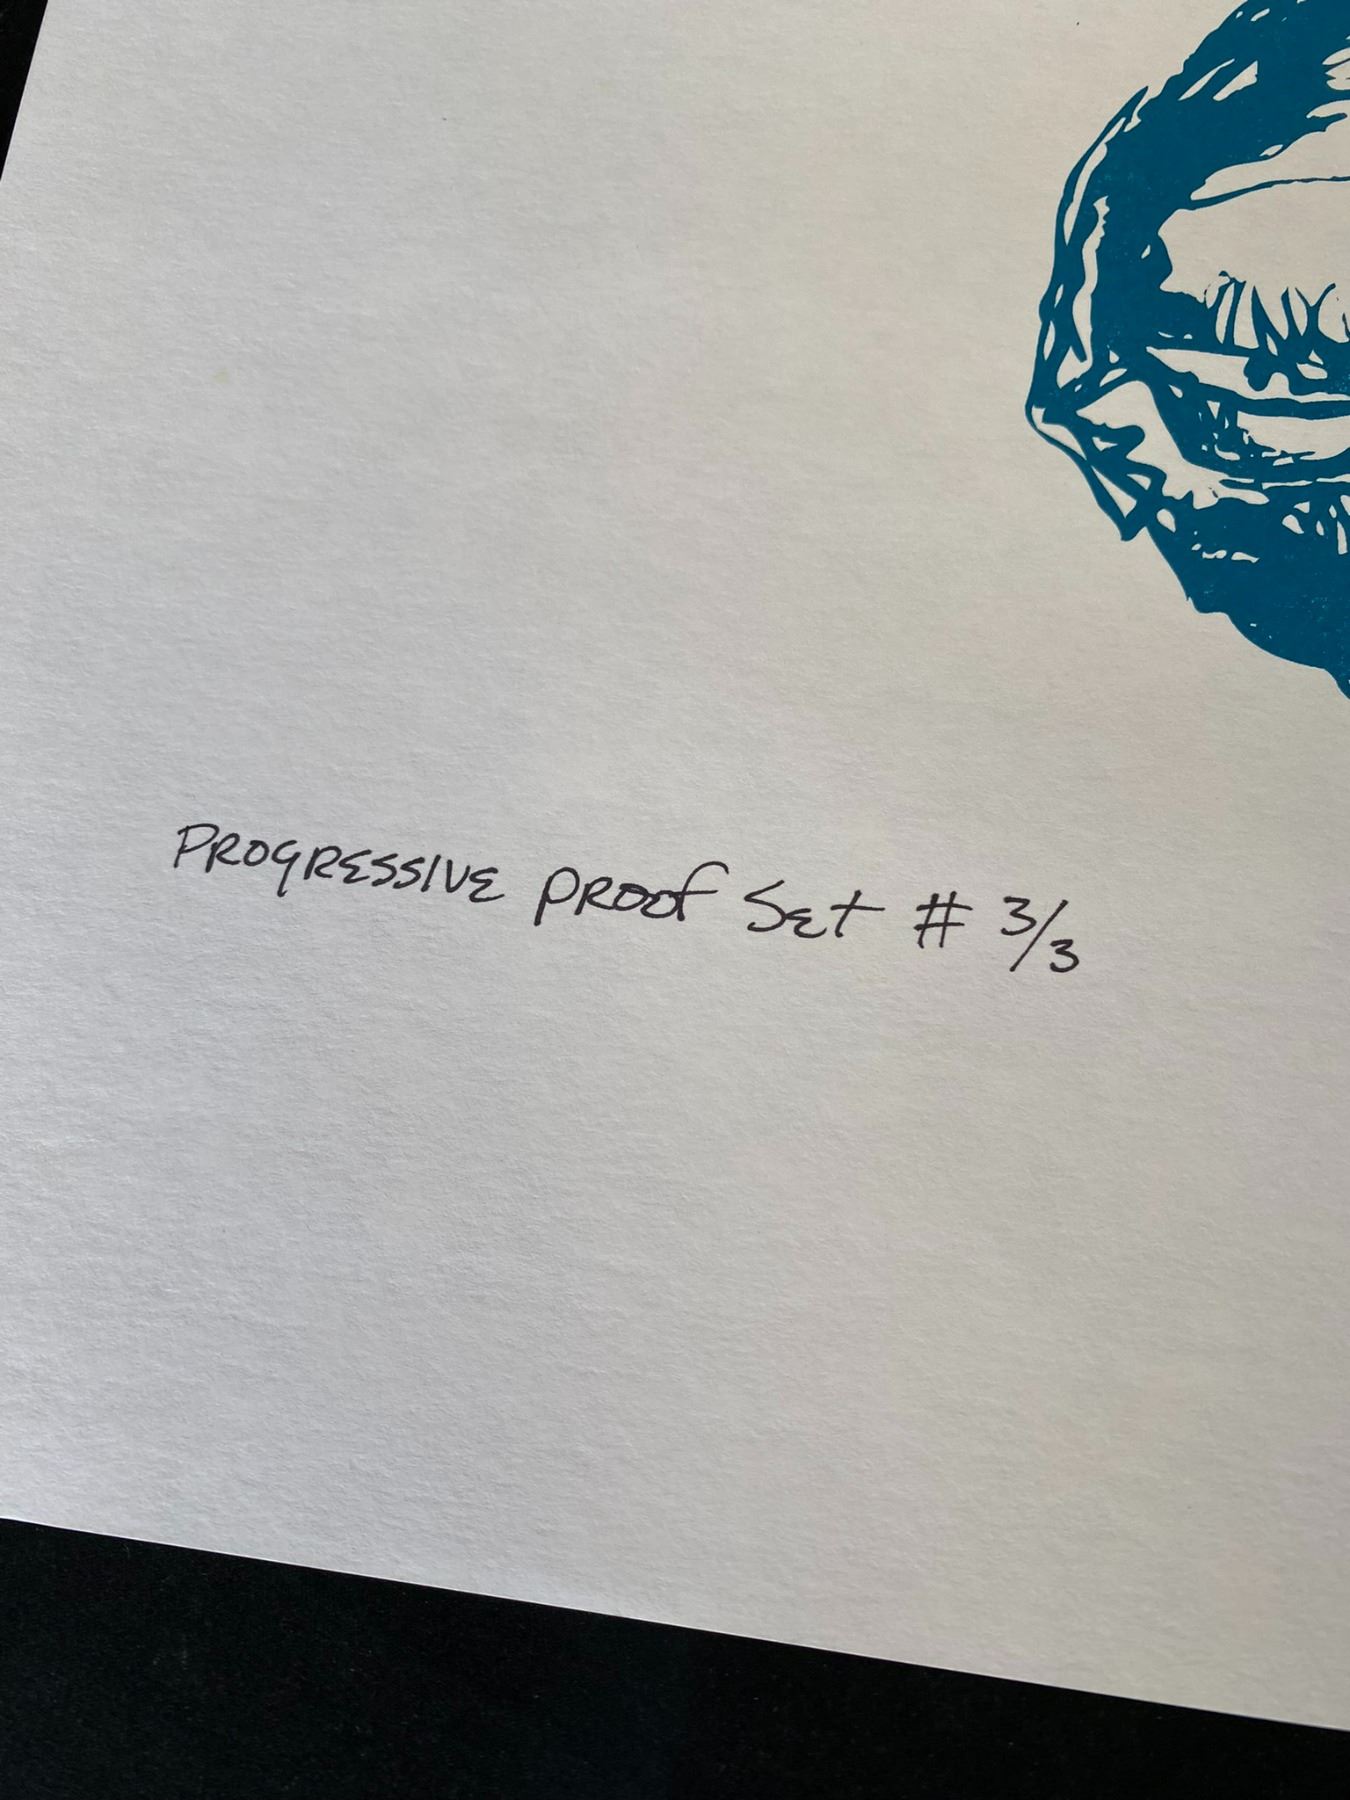 PROGRESSIVE PROOF SET # 3/3